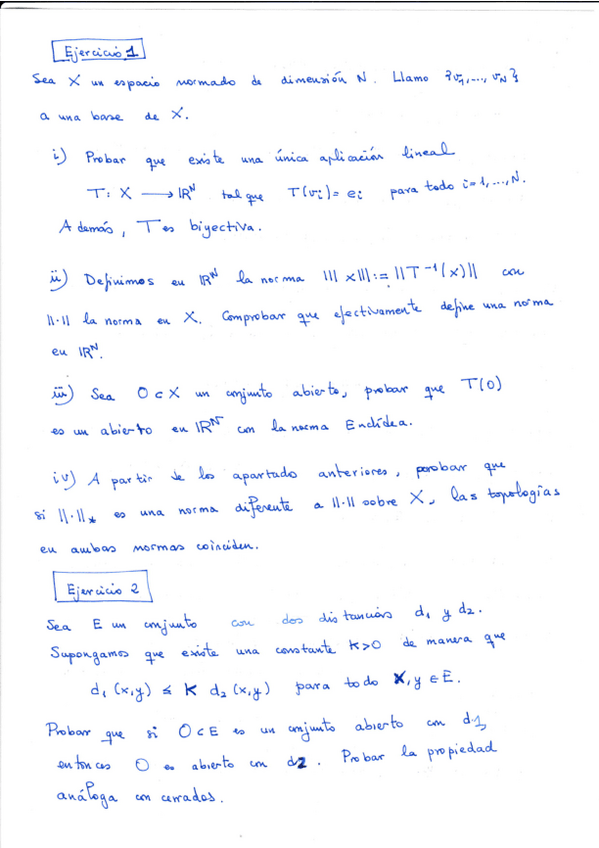 Ejercicio 1
Sea X un espacio normado de dimensión N. Llamo {v₁,..., v_N}
a una base de X.
i) Probar que existe una única aplicación lineal
T: X ⟶ ℝᴺ tal que T(vᵢ) = eᵢ para todo i=1,...,N.
Además, T es biyectiva.
ii) Definimos en ℝᴺ la norma |||x||| := ||T⁻¹(x)|| con
||·|| la norma en X. Comprobar que efectivamente define una norma
en ℝᴺ.
iii) Sea O⊂X un conjunto abierto, probar que T(O)
es un abierto en ℝᴺ con la norma Euclídea.
iv) A partir de los apartado anteriores, probar que
si ||·||* es una norma diferente a ||·|| sobre X, las topologías
en ambas normas coinciden.
Ejercicio 2
Sea E un conjunto con dos distancias d₁ y d₂.
Supongamos que existe una constante K>0 de manera que
d₁(x,y) ≤ K d₂(x,y) para todo x,y ∈ E.
Probar que si O⊂E es un conjunto abierto con d₁,
entonces O es abierto con d₂. Probar la propiedad
análoga con cerrados.